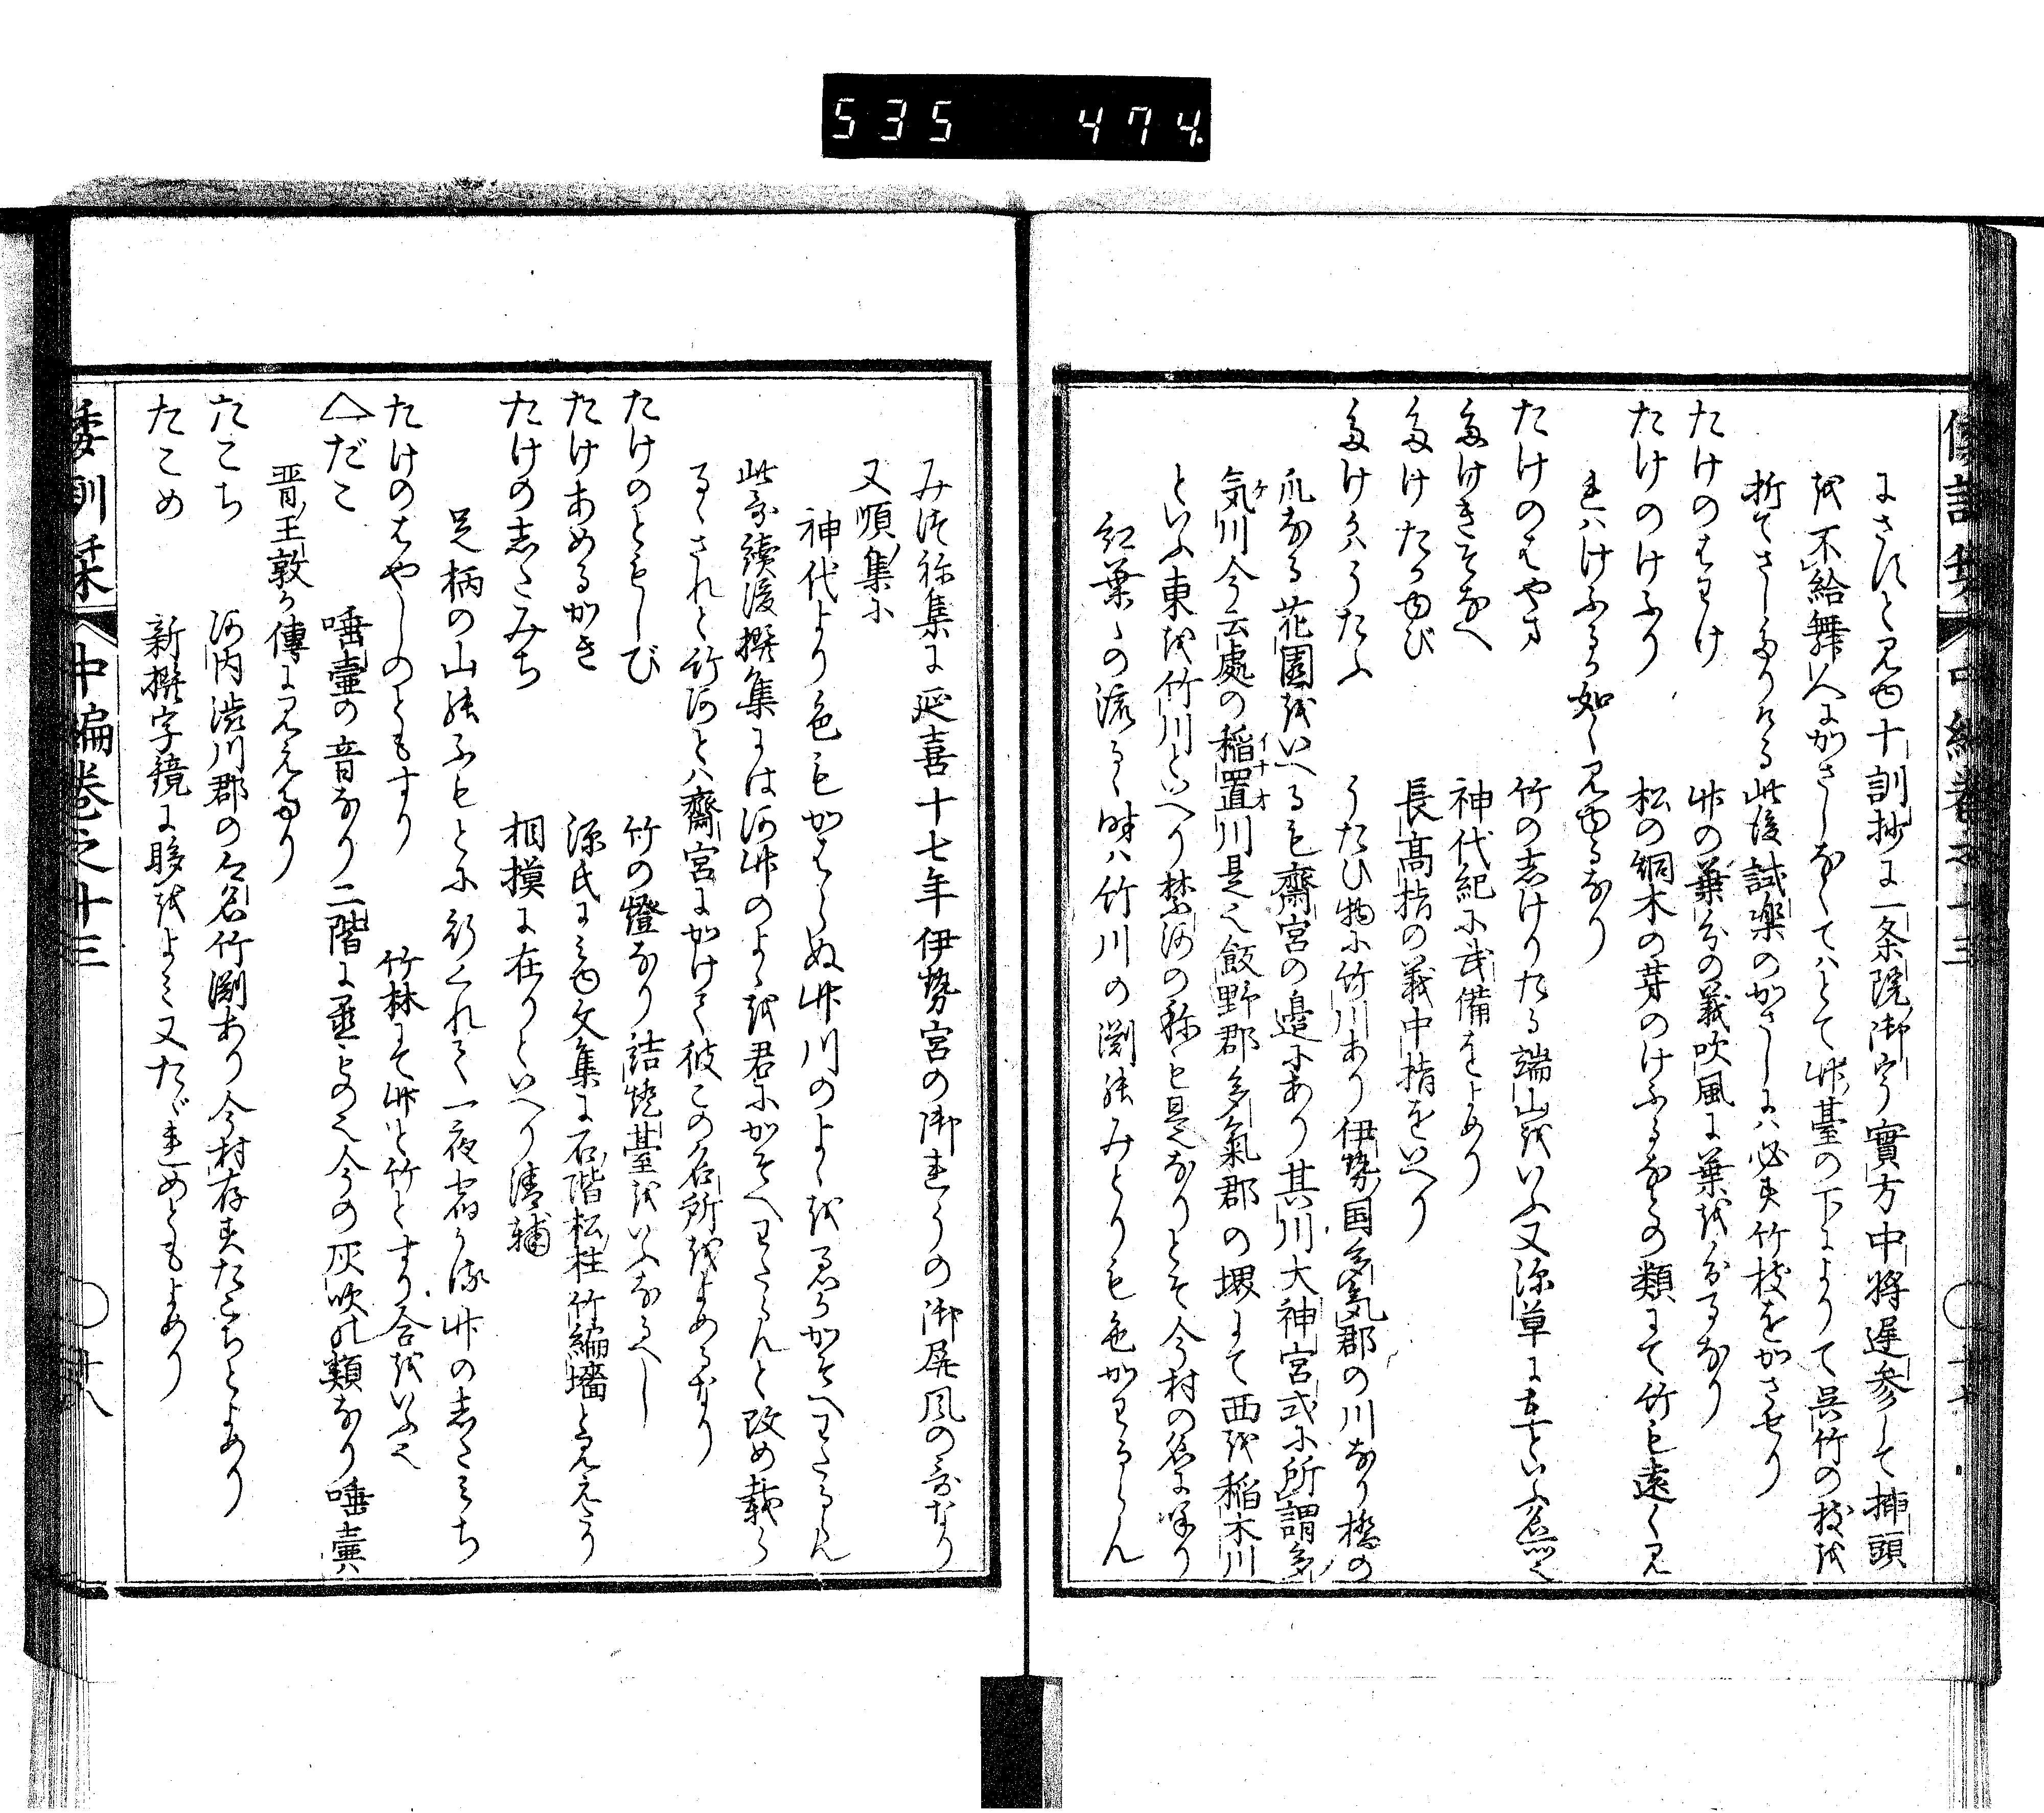 535 474
にさすと見ゆ十訓抄に一条院御宇實方中将遅参して挿頭
を不給舞人にかさしなくてはとて竹臺の下によりて呉竹の枝を
折てさしたりける此後試楽のかさしには必す竹枝をかさせり
たけのはわけ 竹の葉分の義吹風に葉を分るなり
たけのけふり 松の緑木の芽のけふるなとの類にて竹も遠く見
れはけふるか如く見ゆるなり
たけのはやま 竹の志けりたる端山をいふ又深草に在といふ
たけきそなへ 神代紀に武備をよめり
たけたかゆび 長高指の義中指をいへり
たけかはうたふ うたひ物に竹川あり伊勢国多気郡の川なり橋の
爪なる花園をいへるも齋宮の邊にあり其川大神宮式に所謂多
気川今云處の稲置川是也飯野郡多氣郡の堺にて西を稲木川
といふ東を竹川といへり禁河の称も是なりとそ今村の名に
紅葉の流るゝ時は竹川の渕のみとりも色かはるらん
みつね集に延喜十七年伊勢宮の御れうの御屏風の哥なり
又順集に
神代より色もかはらぬ竹川のよゝをるかそへわたるらん
此哥續後撰集には河竹のよゝを君にかそへわたらんと改め載らる
されと竹河とは齋宮にかけて彼この名所をよめるなり
たけのともしび 竹の燈なり詰燒臺をいふなるへし
たけあめるかき 源氏にみゆ文集に石階松柱竹編墻と見えたり
たけの志たみち 相摸に在りといへり清輔
足柄の山のふもとに行くれて一夜宿かる竹の志たみち
たけのはやしのともすり 竹林にて竹と竹とすり合をいふ也
△だこ 唾壷の音なり二階に置もの也今の灰吹の類なり唾壷
晋王敦か傳に見えたり
たこち 河内渋川郡の郷名竹渕あり今村存すたこちとよめり
たこめ 新撰字鏡に眵をよみ又たゞれめともよめり
倭訓栞 中編巻之十三